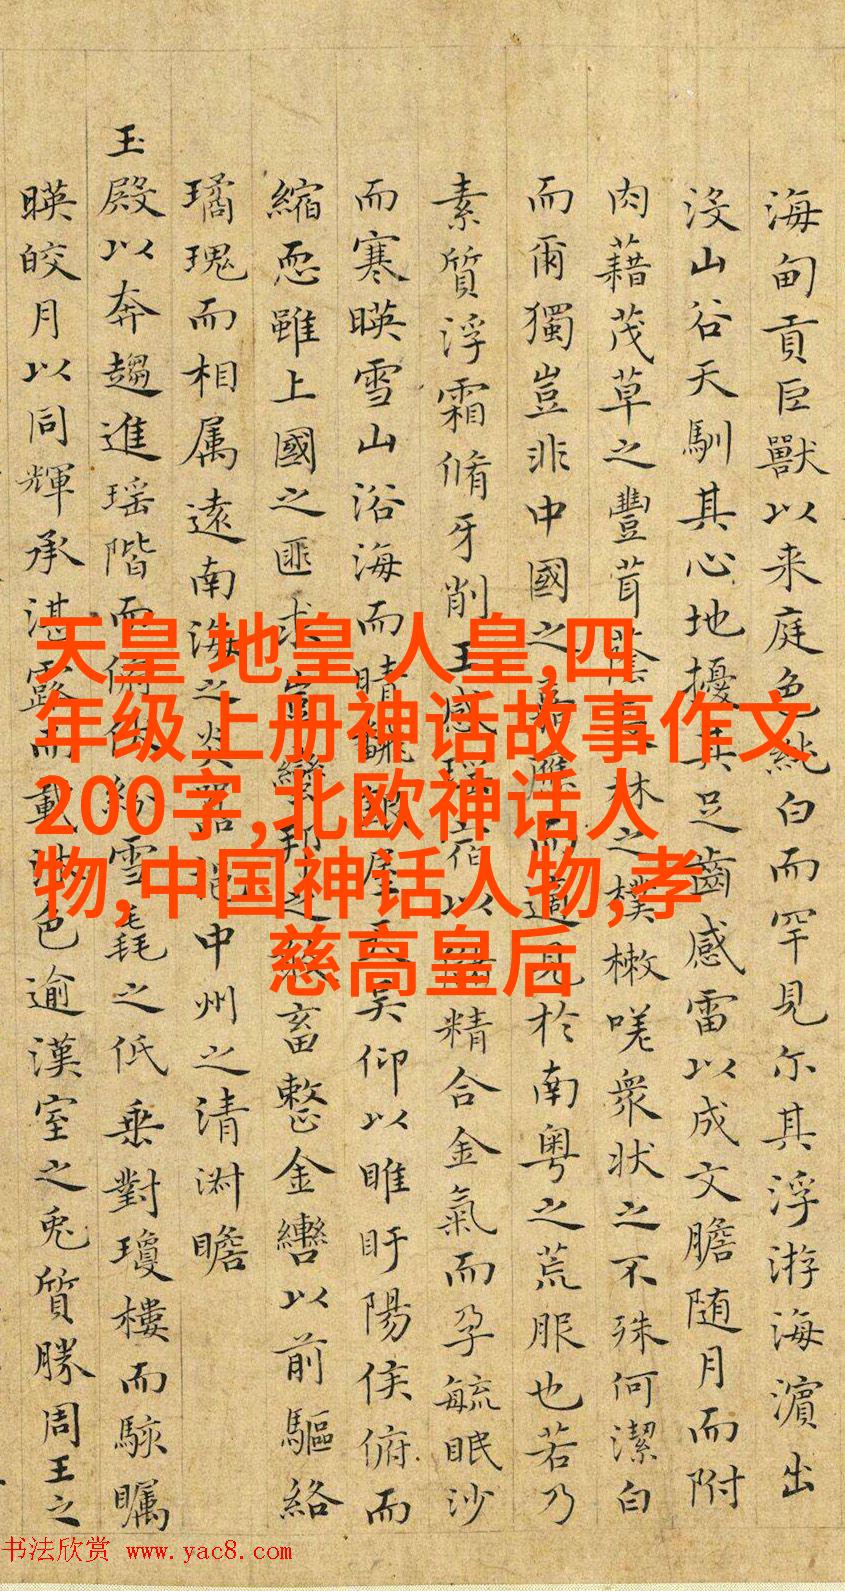 海甸貢巨獸以来庭色純白而罕見尔其浮游海濵出
没山谷天馴其心地擾其足齒感雷以成文膽随月而附
肉藉茂草之豐茸蔭林之樸樕嗟衆状之不殊何潔白
而爾獨豈非中國之嘉應而適見於南粤之荒服也若乃
素質浮霜脩牙削玉感瑶以精合金氣而孕毓眠沙
而寒暎雪山浴海而晴銀屋天吴仰以睢盱陽侯俯而
縮恧雖上國之匪求蠻邦之畜整金轡以前驅絡
璚瑰而相属遠南海之炎中州之清淑瞻
玉殿以奔趨進瑶階而俯伏紛雪毳之低垂對瓊樓而駭矚
暎皎月以同輝承湛露而載沐色逾漢室之兎質勝周王之
天皇 地皇 人皇,四
年级上册神话故事作文
200字,北欧神话人
物,中国神话人物,孝
慈高皇后
书法欣赏 www.yac8.com